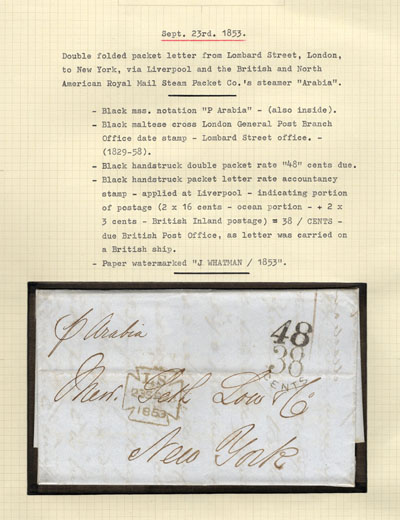 Sept. 23rd. 1853.
Double folded packet letter from Lombard Street, London,
to New York, via Liverpool and the British and North
American Royal Mail Steam Packet Co.'s steamer "Arabia".
- Black mss. notation "P Arabia" - (also inside).
- Black maltese cross London General Post Branch
Office date stamp - Lombard Street office. -
(1829-58).
- Black handstruck double packet rate "48" cents due.
- Black handstruck packet letter rate accountancy
stamp - applied at Liverpool - indicating portion
of postage (2 x 16 cents - ocean portion - + 2 x
3 cents - British Inland postage) = 38 / CENTS -
due British Post Office, as letter was carried on
a British ship.
- Paper watermarked "J. WHATMAN / 1853".
p Arabia
48
38
CENTS
LS
23SP
1853
Messrs. Seth Low & Co
New York